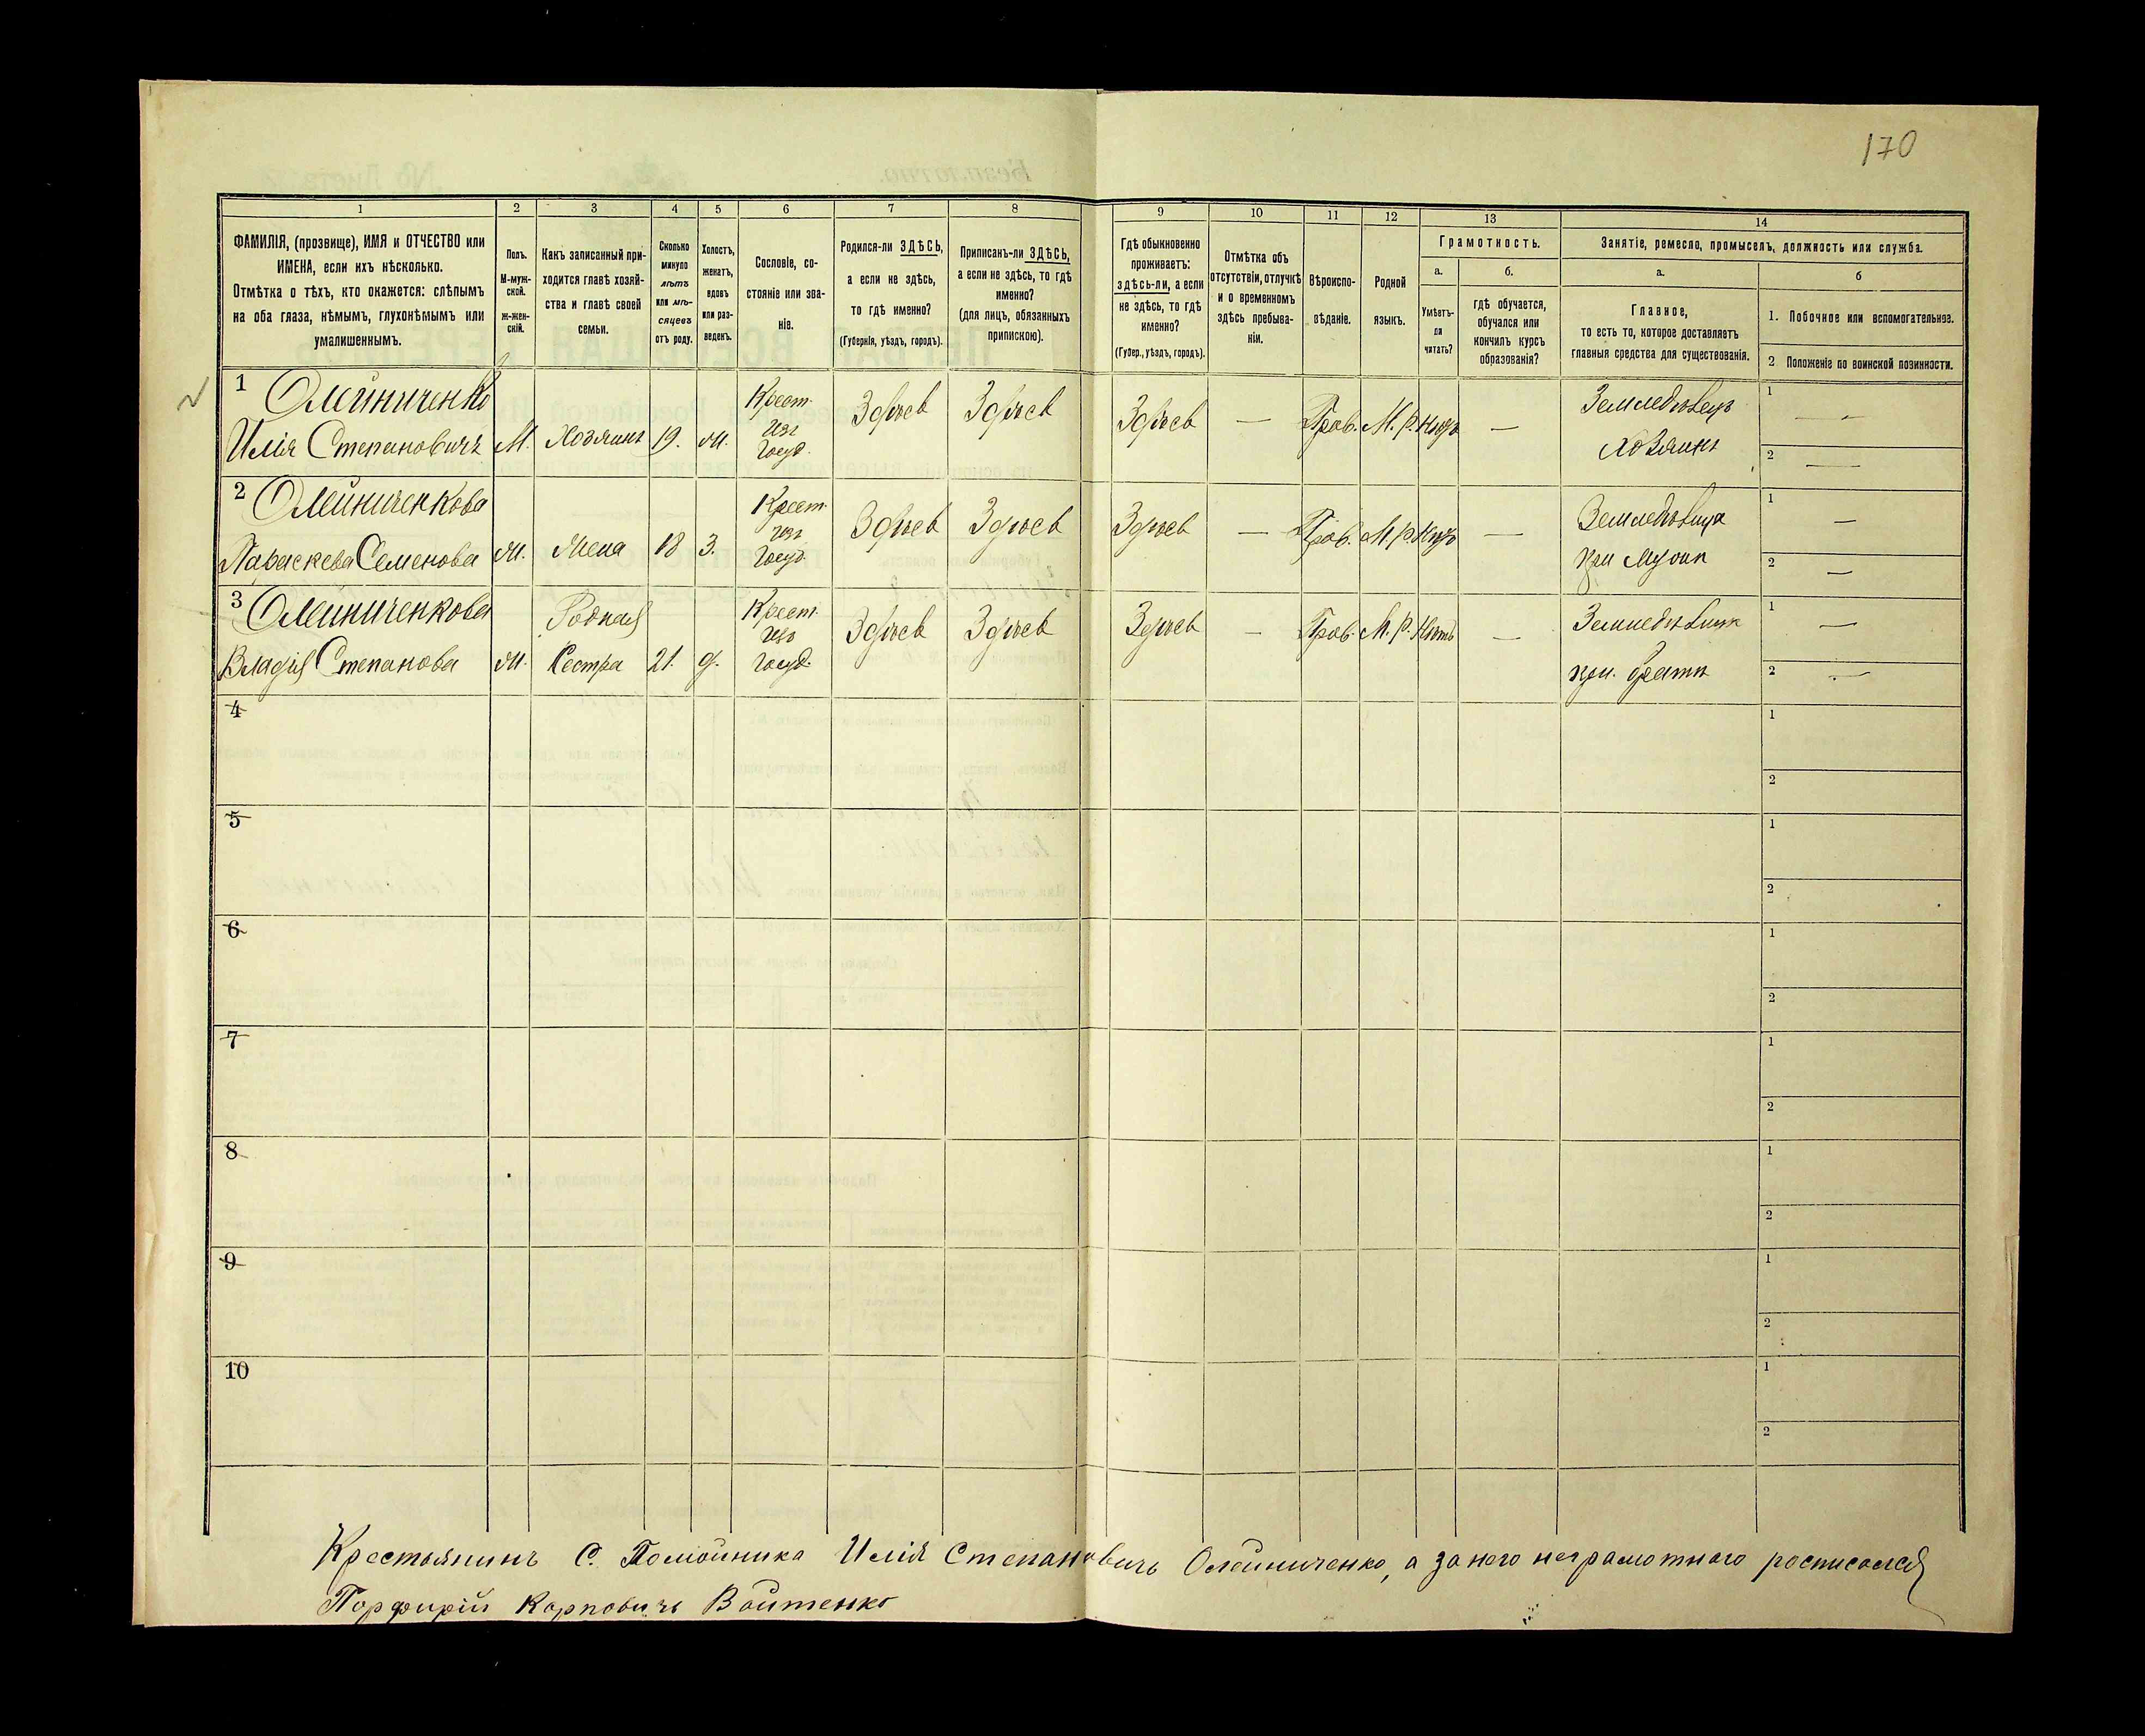 170
1
2
3
4
5
6
7
8
9
10
11
12
13
14
ФАМИЛІЯ, (прозвище), ИМЯ и ОТЧЕСТВО или
ИМЕНА, если ихъ нѣсколько.
Отмѣтка о тѣхъ, кто окажется: слѣпымъ
на оба глаза, нѣмымъ, глухонѣмымъ или
умалишеннымъ.
Полъ.
М-муж-
ской.
ж-жен-
скій.
Какъ записанный при-
ходится главѣ хозяй-
ства и главѣ своей
семьи.
Сколько
минуло
лѣтъ
или мѣ-
сяцевъ
отъ роду.
Холостъ,
женатъ,
вдовъ
или раз-
веденъ.
Сословіе, со-
стояніе или зва-
ніе.
Родился-ли ЗДѢСЬ,
а если не здѣсь,
то гдѣ именно?
(Губернія, уѣздъ, городъ).
Приписанъ-ли ЗДѢСЬ,
а если не здѣсь, то гдѣ
именно?
(для лицъ, обязанныхъ
припискою).
Гдѣ обыкновенно
проживаетъ:
здѣсь-ли, а если
не здѣсь, то гдѣ
именно?
(Губер., уѣздъ, городъ).
Отмѣтка объ
отсутствіи, отлучкѣ
и о временномъ
здѣсь пребыва-
ніи.
Вѣроиспо-
вѣданіе.
Родной
языкъ.
Грамотность.
а.
Умѣетъ-
ли
читать?
б.
гдѣ обучается,
обучался или
кончилъ курсъ
образованія?
Занятіе, ремесло, промыселъ, должность или служба.
а.
Главное,
то есть то, которое доставляетъ
главныя средства для существованія.
б
1. Побочное или вспомогательное.
2 Положеніе по воинской повинности.
1 Олейниченко
Илія Степановичъ
М.
Хозяинъ
19.
ж.
Крест.
изъ
госуд.
Здѣсь
Здѣсь
Здѣсь
—
Прав.
М. р.
Нѣтъ
—
Земледѣлецъ
хозяинъ
1 —
2 —
2 Олейниченкова
Параскева Семенова
ж.
Жена
18
З.
Крест.
изъ
госуд.
Здѣсь
Здѣсь
Здѣсь
—
Прав.
М. р.
Нѣтъ
—
Земледѣлица
при мужѣ
1 —
2 —
3 Олейниченкова
Степанова
ж.
Родная
Сестра
21.
д.
Крест.
изъ
госуд.
Здѣсь
Здѣсь
Здѣсь
—
Прав.
М. р.
Нѣтъ
—
Земледѣлица
при братѣ
1 —
2 —
4
1
2
5
1
2
6
1
2
7
1
2
8
1
2
9
1
2
10
1
2
Крестьянинъ С. Помойника Илія Степановичъ Олейниченко, а за него неграмотнаго росписался
Порфирій Карповичъ Войтенко